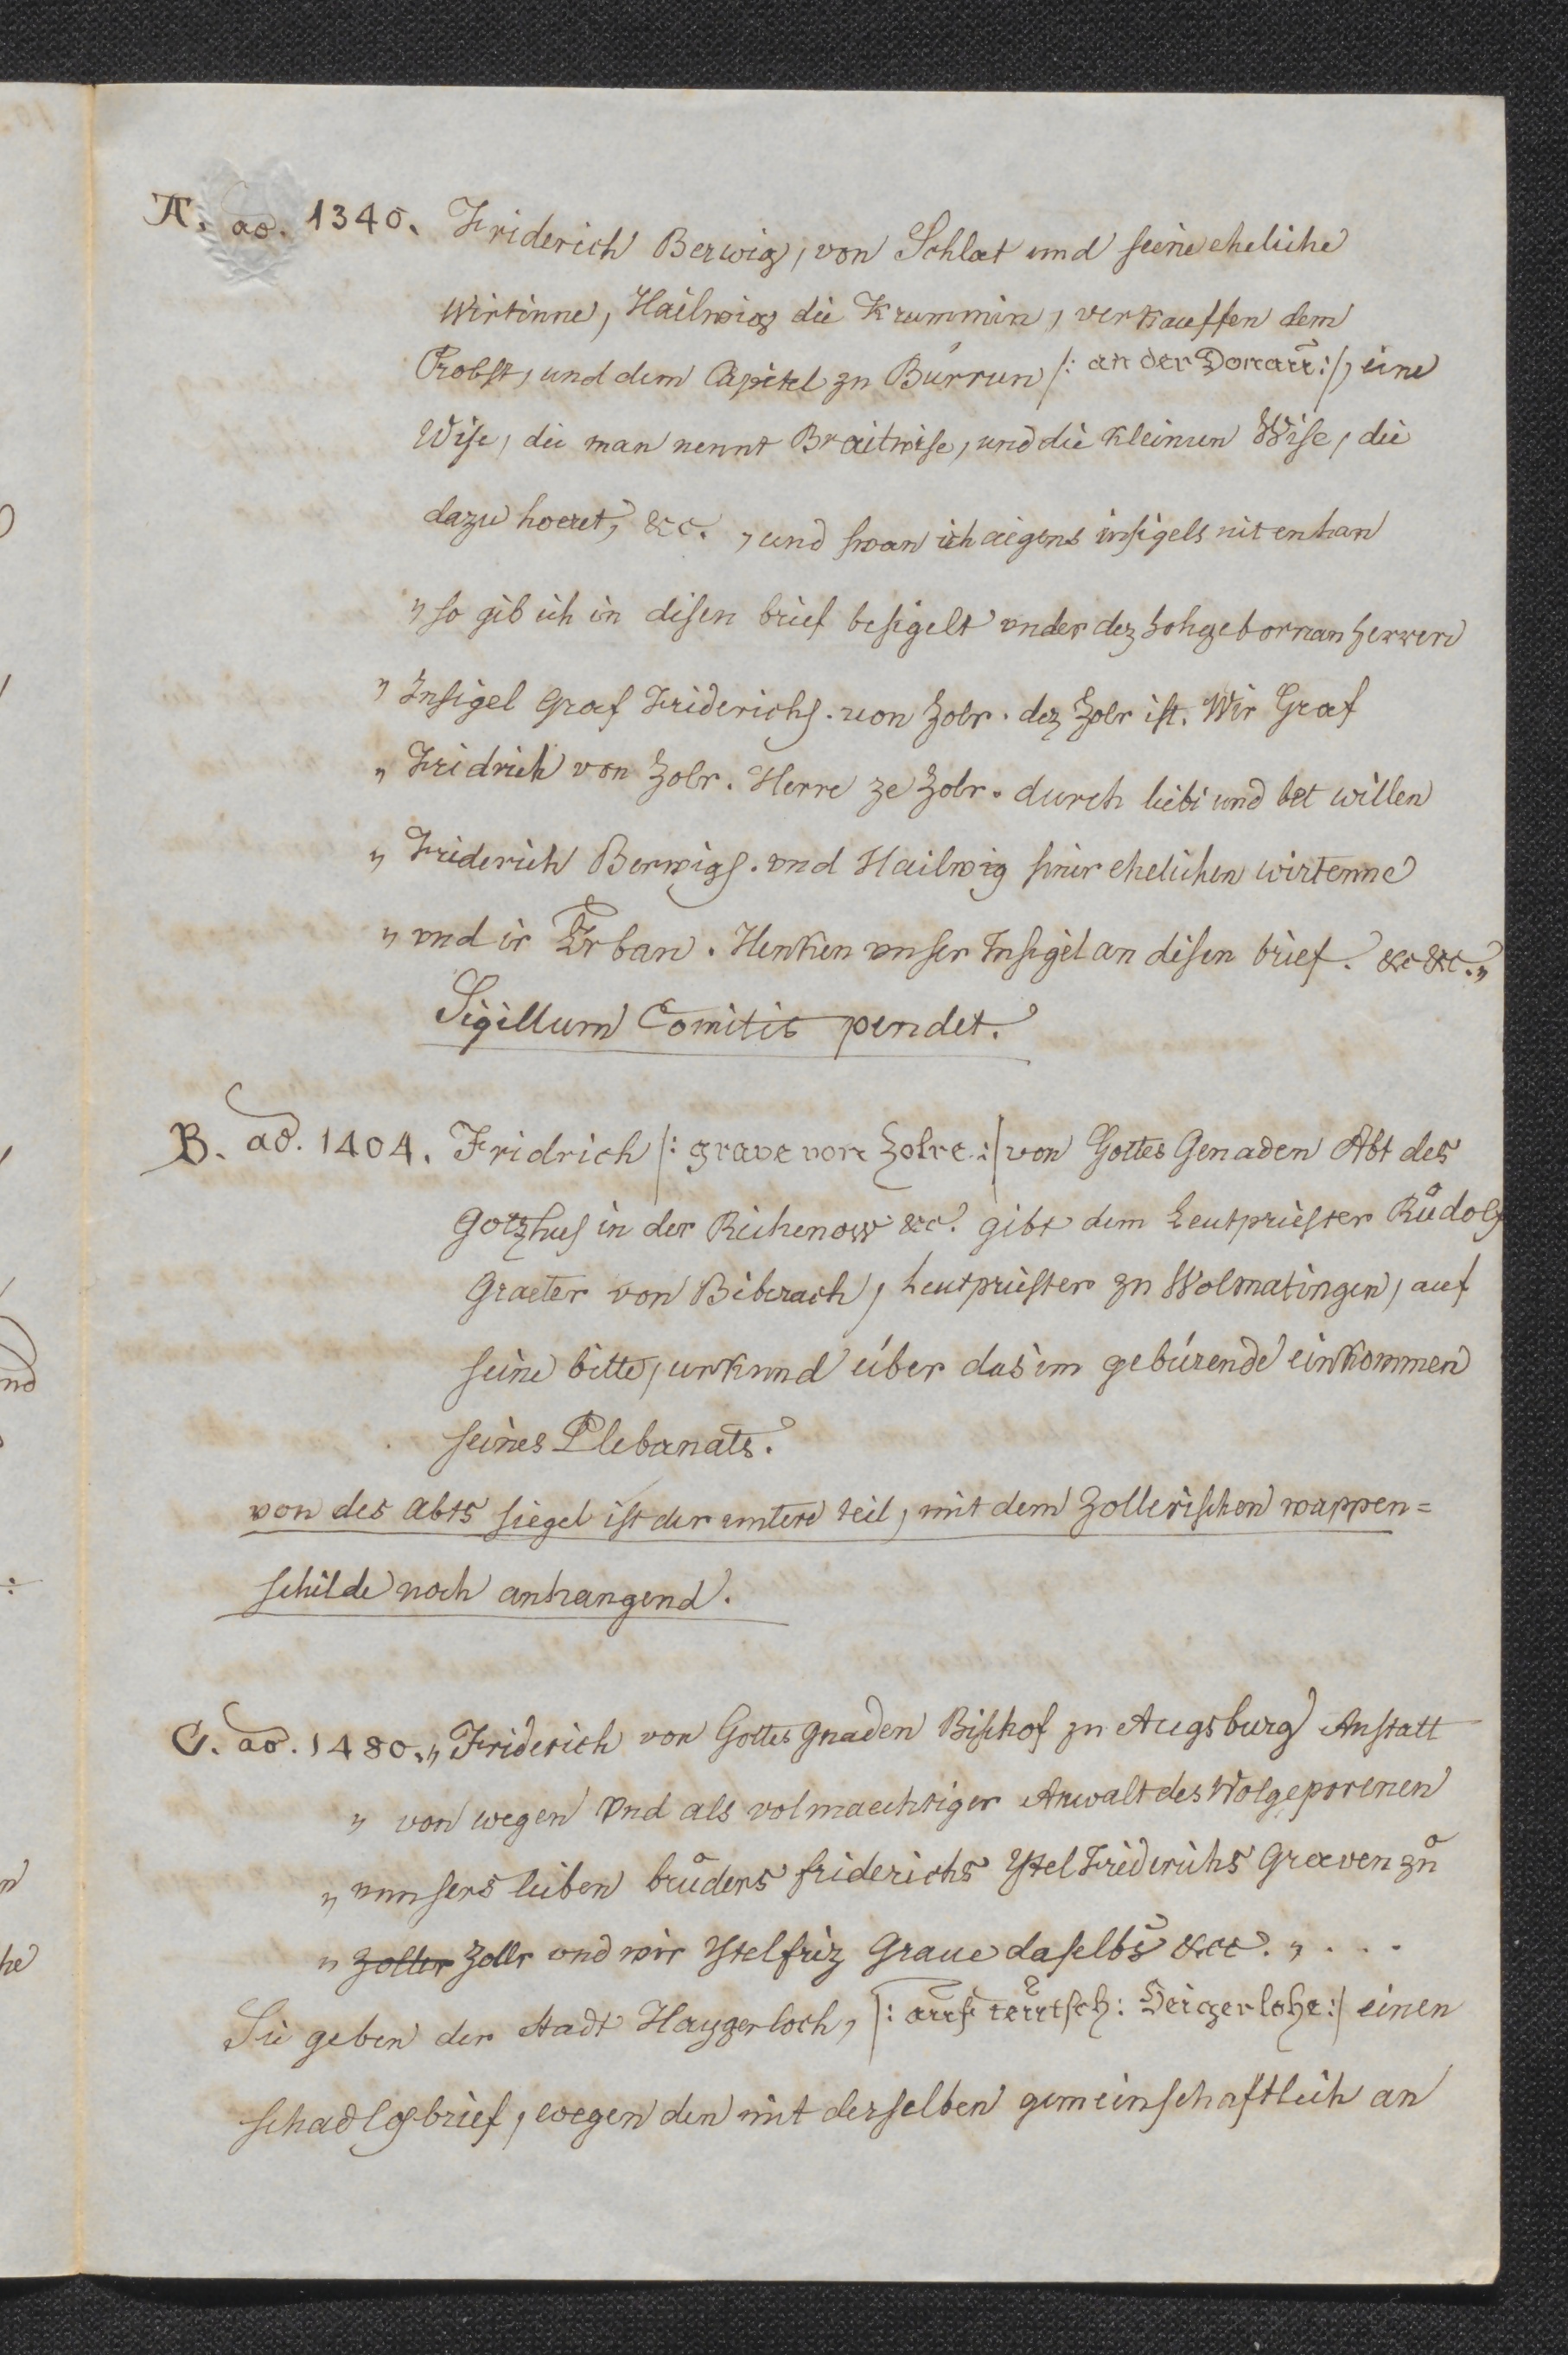 A. ao. 1340. Friderich Berwig, von Schlat und seine eheliche
Wirtinne, Hailwig die Krummin, verkauffen dem
Probst, und dem Capitel zu Búrrun /: an der Donaw :/, eine
Wise, die man nennt Braitwise, und die kleinun Wise, die
dazu hoeret, &c. „ und swan ich aigens insigels nit enhan
„ so gib ich in disen brief besigelt under dez hohgebornan herren
„ Insigel Graf Friderichs. von Zolr. dez Zolr ist. Wir Graf
„ Fridrich von Zolr. Herre ze Zolr. durch liebi und bet willen
„ Friderich Berwigs. vnd Hailwig siner elichen wirtenne
„ vnd ir Erban. Henken vnser Insigel an disen brief. &c &c. „
Sigillum Comitis pendet.
B. ao. 1404. Fridrich /: grave von Zolre :/ von Gottes Genaden Abt des
Gotzhus in der Richenow &c. gibt dem Leutpriester Růdolf
Graeter von Biberach, Leutpriester zu Wolmatingen, auf
seine bitte, urkund über das im gebürende einkommen
seines Plebanats.
von des abts siegel ist der untere teil, mit dem Zollerischen wappen=
schilde noch anhangend.
C. ao. 1480. „ Friderich von Gottes gnaden Bischof zu Augsburg Anstatt
„ von wegen Vnd als volmaechtiger Anwalt des Wolgepornen
„ vnnsers lieben brůders friderichs Ytel Friderichs Graven zů
„ Zoller Zollr vnd wir Ytelfriz Graue daselbs &cc. „ . . .
Sie geben der Stadt Haygerloch, /: teutsch: Heigerlohe :/ einen
schadlosbrief, wegen den mit derselben gemeinschaftlich an